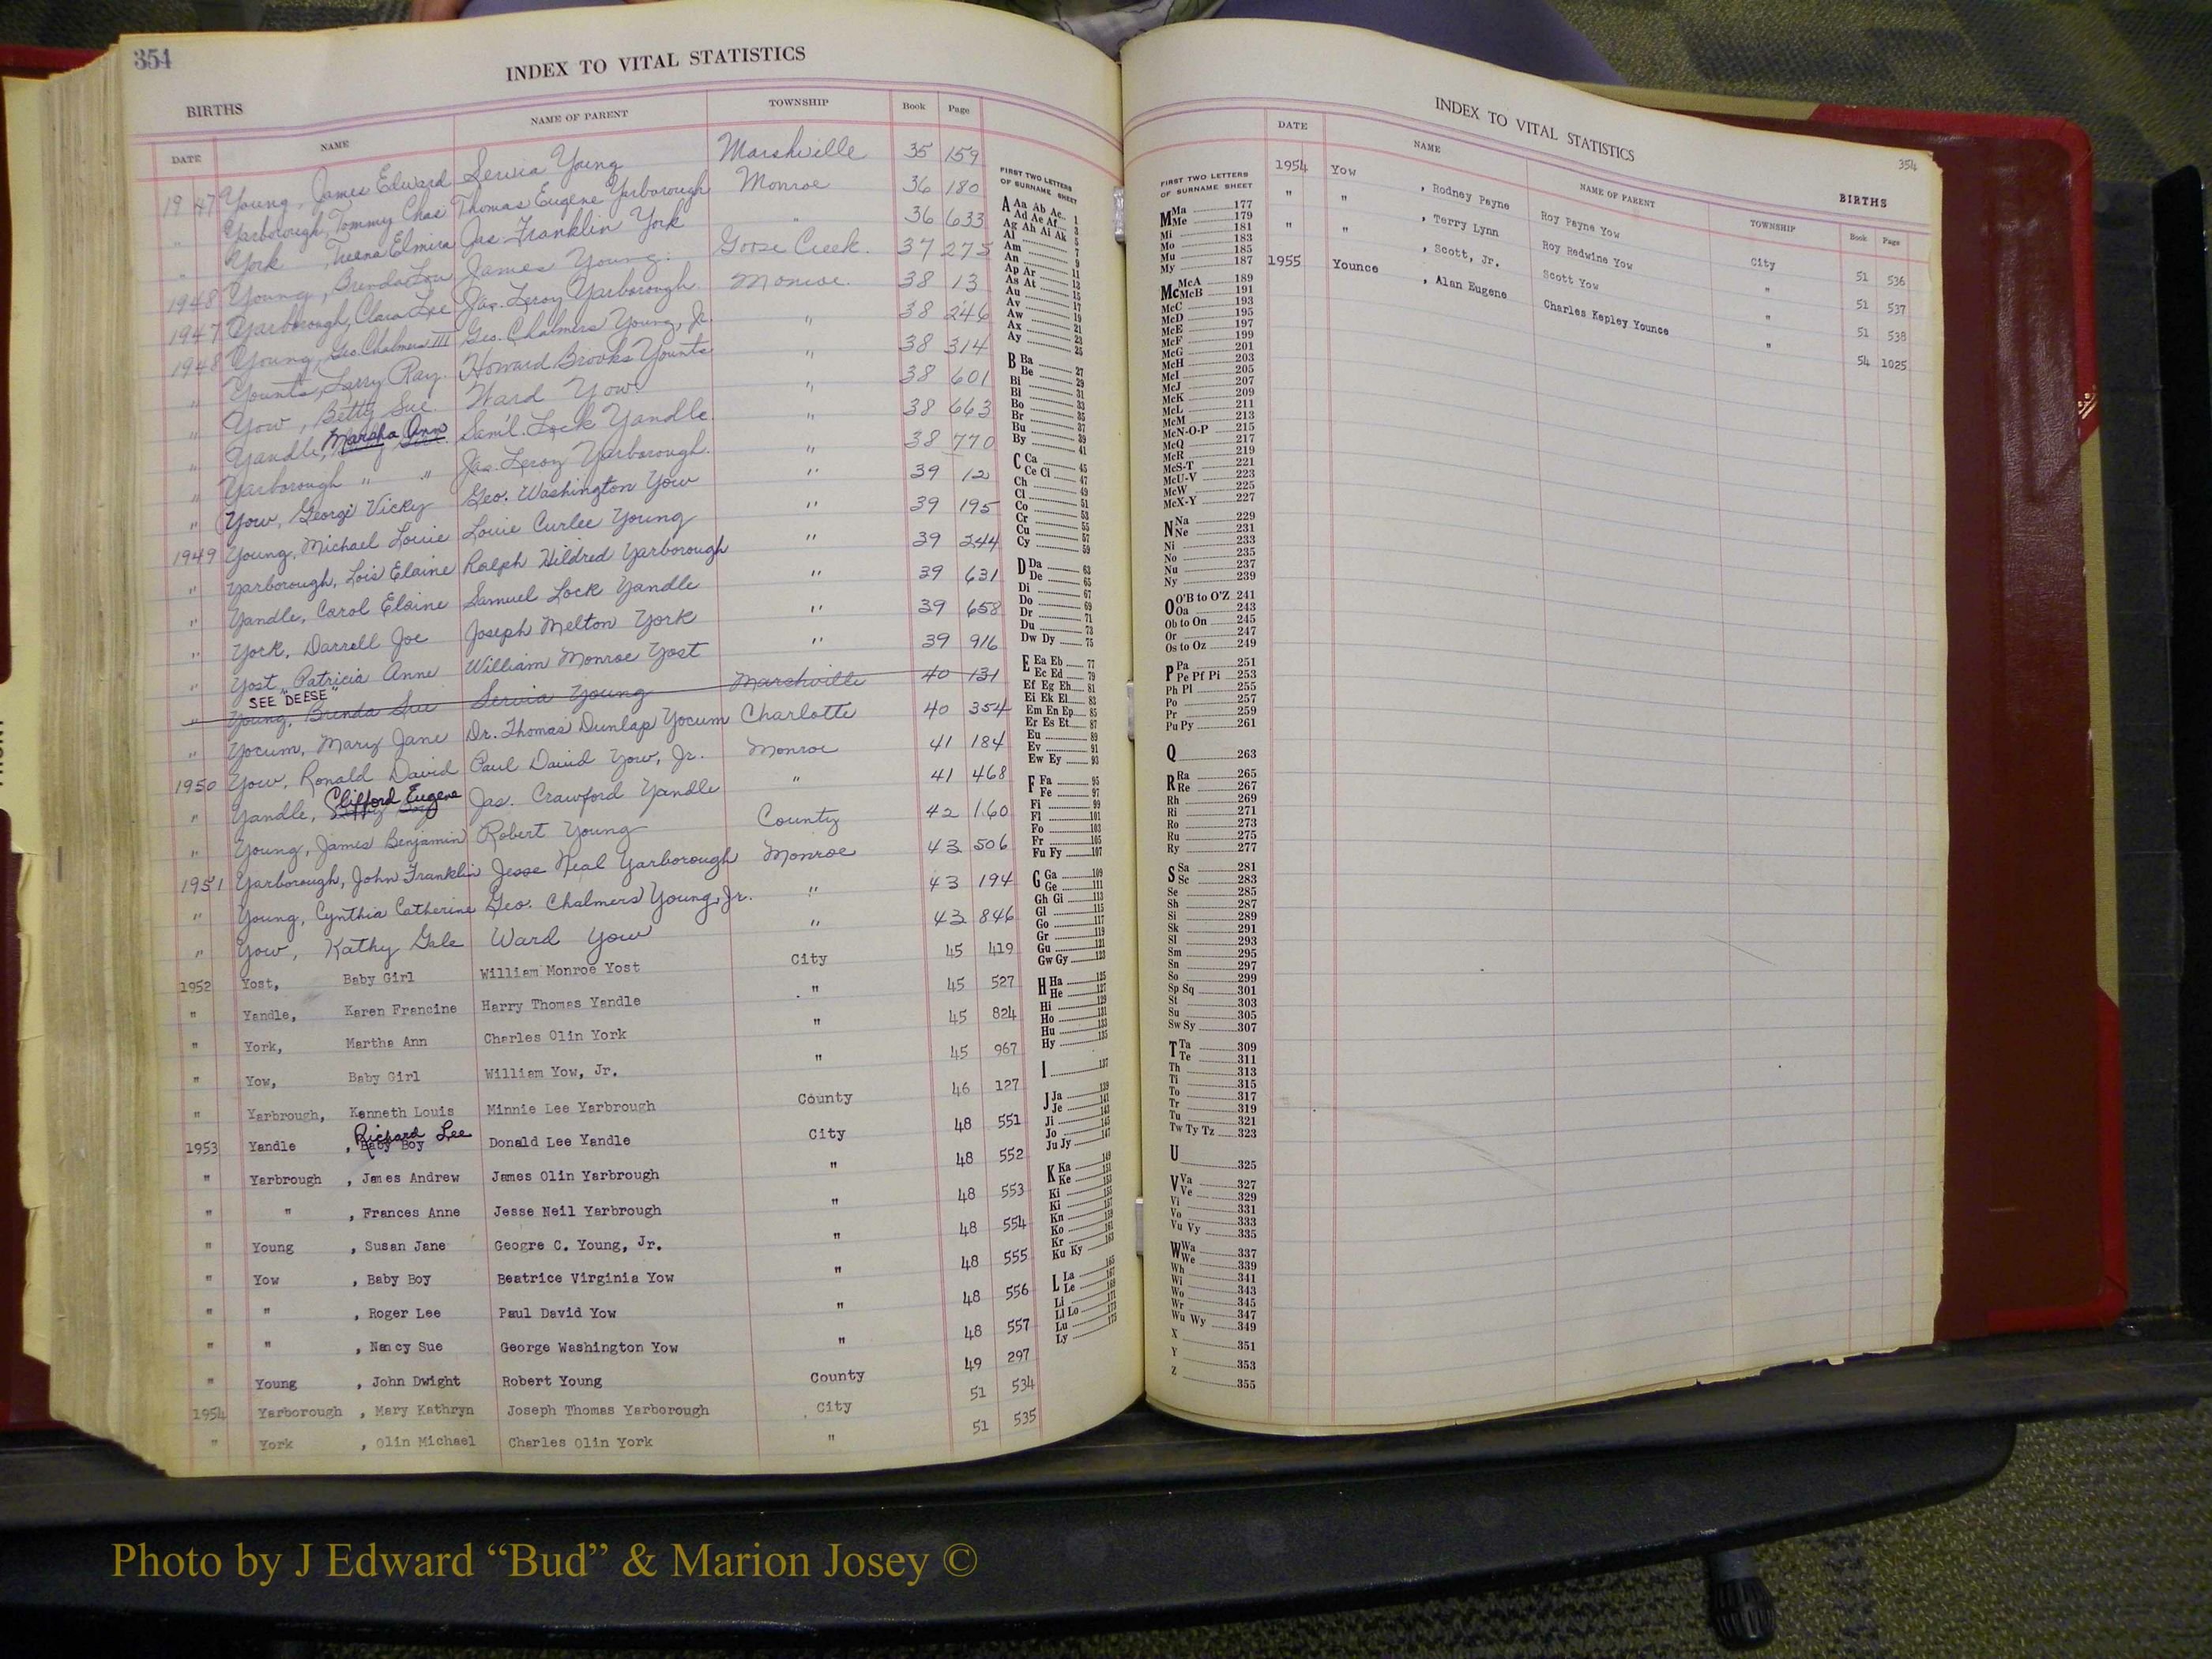 354
INDEX TO VITAL STATISTICS
BIRTHS
DATE NAME NAME OF PARENT TOWNSHIP Book Page
1947 Young, James Edward Servia Young Marshville 35 159
" Yarborough, Tommy Chas Thomas Eugene Yarborough Monroe 36 180
" York, Elmira Jas. Franklin York " 36 633
1948 Young, Brenda Lou James Young Goose Creek 37 275
1947 Yarborough, Clara Lee Jas. Leroy Yarborough Monroe 38 13
1948 Young, Geo. Chalmers III Geo. Chalmers Young, Jr. " 38 246
" Younts, Larry Ray Howard Brooks Younts " 38 314
" Yow, Betty Sue Ward Yow " 38 601
" Yandle, Marsha Ann Sam'l. Lock Yandle " 38 663
" Yarborough " " Jas. Leroy Yarborough " 38 770
" Yow, George Vicky Geo. Washington Yow " 39 12
1949 Young, Michael Louie Louie Curlee Young " 39 195
" Yarborough, Lois Elaine Ralph Hildred Yarborough " 39 244
" Yandle, Carol Elaine Samuel Lock Yandle " 39 631
" York, Darrell Joe Joseph Melton York " 39 658
" Yost, Patricia Anne William Monroe Yost " 39 916
SEE "DEESE"
" Young, Brenda Sue Servia Young Marshville 40 131
" Yocum, Mary Jane Dr. Thomas Dunlap Yocum Charlotte 40 354
1950 Yow, Ronald David Paul David Yow, Jr. Monroe 41 184
" Yandle, Clifford Eugene Jas. Crawford Yandle " 41 468
" Young, James Benjamin Robert Young County 42 160
1951 Yarborough, John Franklin Jesse Neal Yarborough Monroe 43 506
" Young, Cynthia Catherine Geo. Chalmers Young, Jr. " 43 194
" Yow, Kathy Gale Ward Yow " 43 846
1952 Yost, Baby Girl William Monroe Yost City 45 419
" Yandle, Karen Francine Harry Thomas Yandle " 45 527
" York, Martha Ann Charles Olin York " 45 824
" Yow, Baby Girl William Yow, Jr. " 45 967
" Yarbrough, Kenneth Louis Minnie Lee Yarbrough County 46 127
Richard Lee
1953 Yandle , Baby Boy Donald Lee Yandle City 48 551
" Yarbrough , James Andrew James Olin Yarbrough " 48 552
" " , Frances Anne Jesse Neil Yarbrough " 48 553
" Young , Susan Jane Geogre C. Young, Jr. " 48 554
" Yow , Baby Boy Beatrice Virginia Yow " 48 555
" " , Roger Lee Paul David Yow " 48 556
" " , Nancy Sue George Washington Yow " 48 557
" Young , John Dwight Robert Young County 49 297
1954 Yarborough , Mary Kathryn Joseph Thomas Yarborough City 51 534
" York , Olin Michael Charles Olin York " 51 535
FIRST TWO LETTERS
OF SURNAME SHEET
A Aa Ab Ac 1
Ad Ae Af 3
Ag Ah Ai Ak 5
Al 7
Am 9
An 11
Ap Ar 13
As At 15
Au 17
Av 19
Aw 21
Ax 23
Ay 25
B Ba 27
Be 29
Bi 31
Bl 33
Bo 35
Br 37
Bu 39
By 41
C Ca 45
Ce Ci 47
Ch 49
Cl 51
Co 53
Cr 55
Cu 57
Cy 59
D Da 63
De 65
Di 67
Do 69
Dr 71
Du 73
Dw Dy 75
E Ea Eb 77
Ec Ed 79
Ef Eg Eh 81
Ei Ek El 83
Em En Ep 85
Er Es Et 87
Eu 89
Ev 91
Ew Ey 93
F Fa 95
Fe 97
Fi 99
Fl 101
Fo 103
Fr 105
Fu Fy 107
G Ga 109
Ge 111
Gh Gi 113
Gl 115
Go 117
Gr 119
Gu 121
Gw Gy 123
H Ha 125
He 127
Hi 129
Ho 131
Hu 133
Hy 135
I 137
J Ja 139
Je 141
Ji 143
Jo 145
Ju Jy 147
K Ka 149
Ke 151
Ki 153
Kl 155
Kn 157
Ko 159
Kr 161
Ku Ky 163
L La 165
Le 169
Li 171
Ll Lo 173
Lu
Ly 175
INDEX TO VITAL STATISTICS
354
BIRTHS
DATE NAME NAME OF PARENT TOWNSHIP Book Page
1954 Yow , Rodney Payne Roy Payne Yow City 51 536
" " , Terry Lynn Roy Redwine Yow " 51 537
" " , Scott, Jr. Scott Yow " 51 538
1955 Younce , Alan Eugene Charles Kepley Younce " 54 1025
FIRST TWO LETTERS
OF SURNAME SHEET
M Ma 177
Me 179
Mi 181
Mo 183
Mu 185
My 187
Mc McA 189
McB 191
McC 193
McD 195
McE 197
McF 199
McG 201
McH 203
McI 205
McJ 207
McK 209
McL 211
McM 213
McN-O-P 215
McQ 217
McR 219
McS-T 221
McU-V 223
McW 225
McX-Y 227
N Na 229
Ne 231
Ni 233
No 235
Nu 237
Ny 239
O O'B to O'Z 241
Oa 243
Ob to On 245
Or 247
Os to Oz 249
P Pa 251
Pe Pf Pi 253
Ph Pl 255
Po 257
Pr 259
Pu Py 261
Q 263
R Ra 265
Re 267
Rh 269
Ri 271
Ro 273
Ru 275
Ry 277
S Sa 281
Sc 283
Se 285
Sh 287
Si 289
Sk 291
Sl 293
Sm 295
Sn 297
So 299
Sp Sq 301
St 303
Su 305
Sw Sy 307
T Ta 309
Te 311
Th 313
Ti 315
To 317
Tr 319
Tu 321
Tw Ty Tz 323
U 325
V Va 327
Ve 329
Vi 331
Vo 333
Vu Vy 335
W Wa 337
We 339
Wh 341
Wi 343
Wo 345
Wr 347
Wu Wy 349
X 351
Y 353
Z 355
Photo by J Edward “Bud” & Marion Josey ©